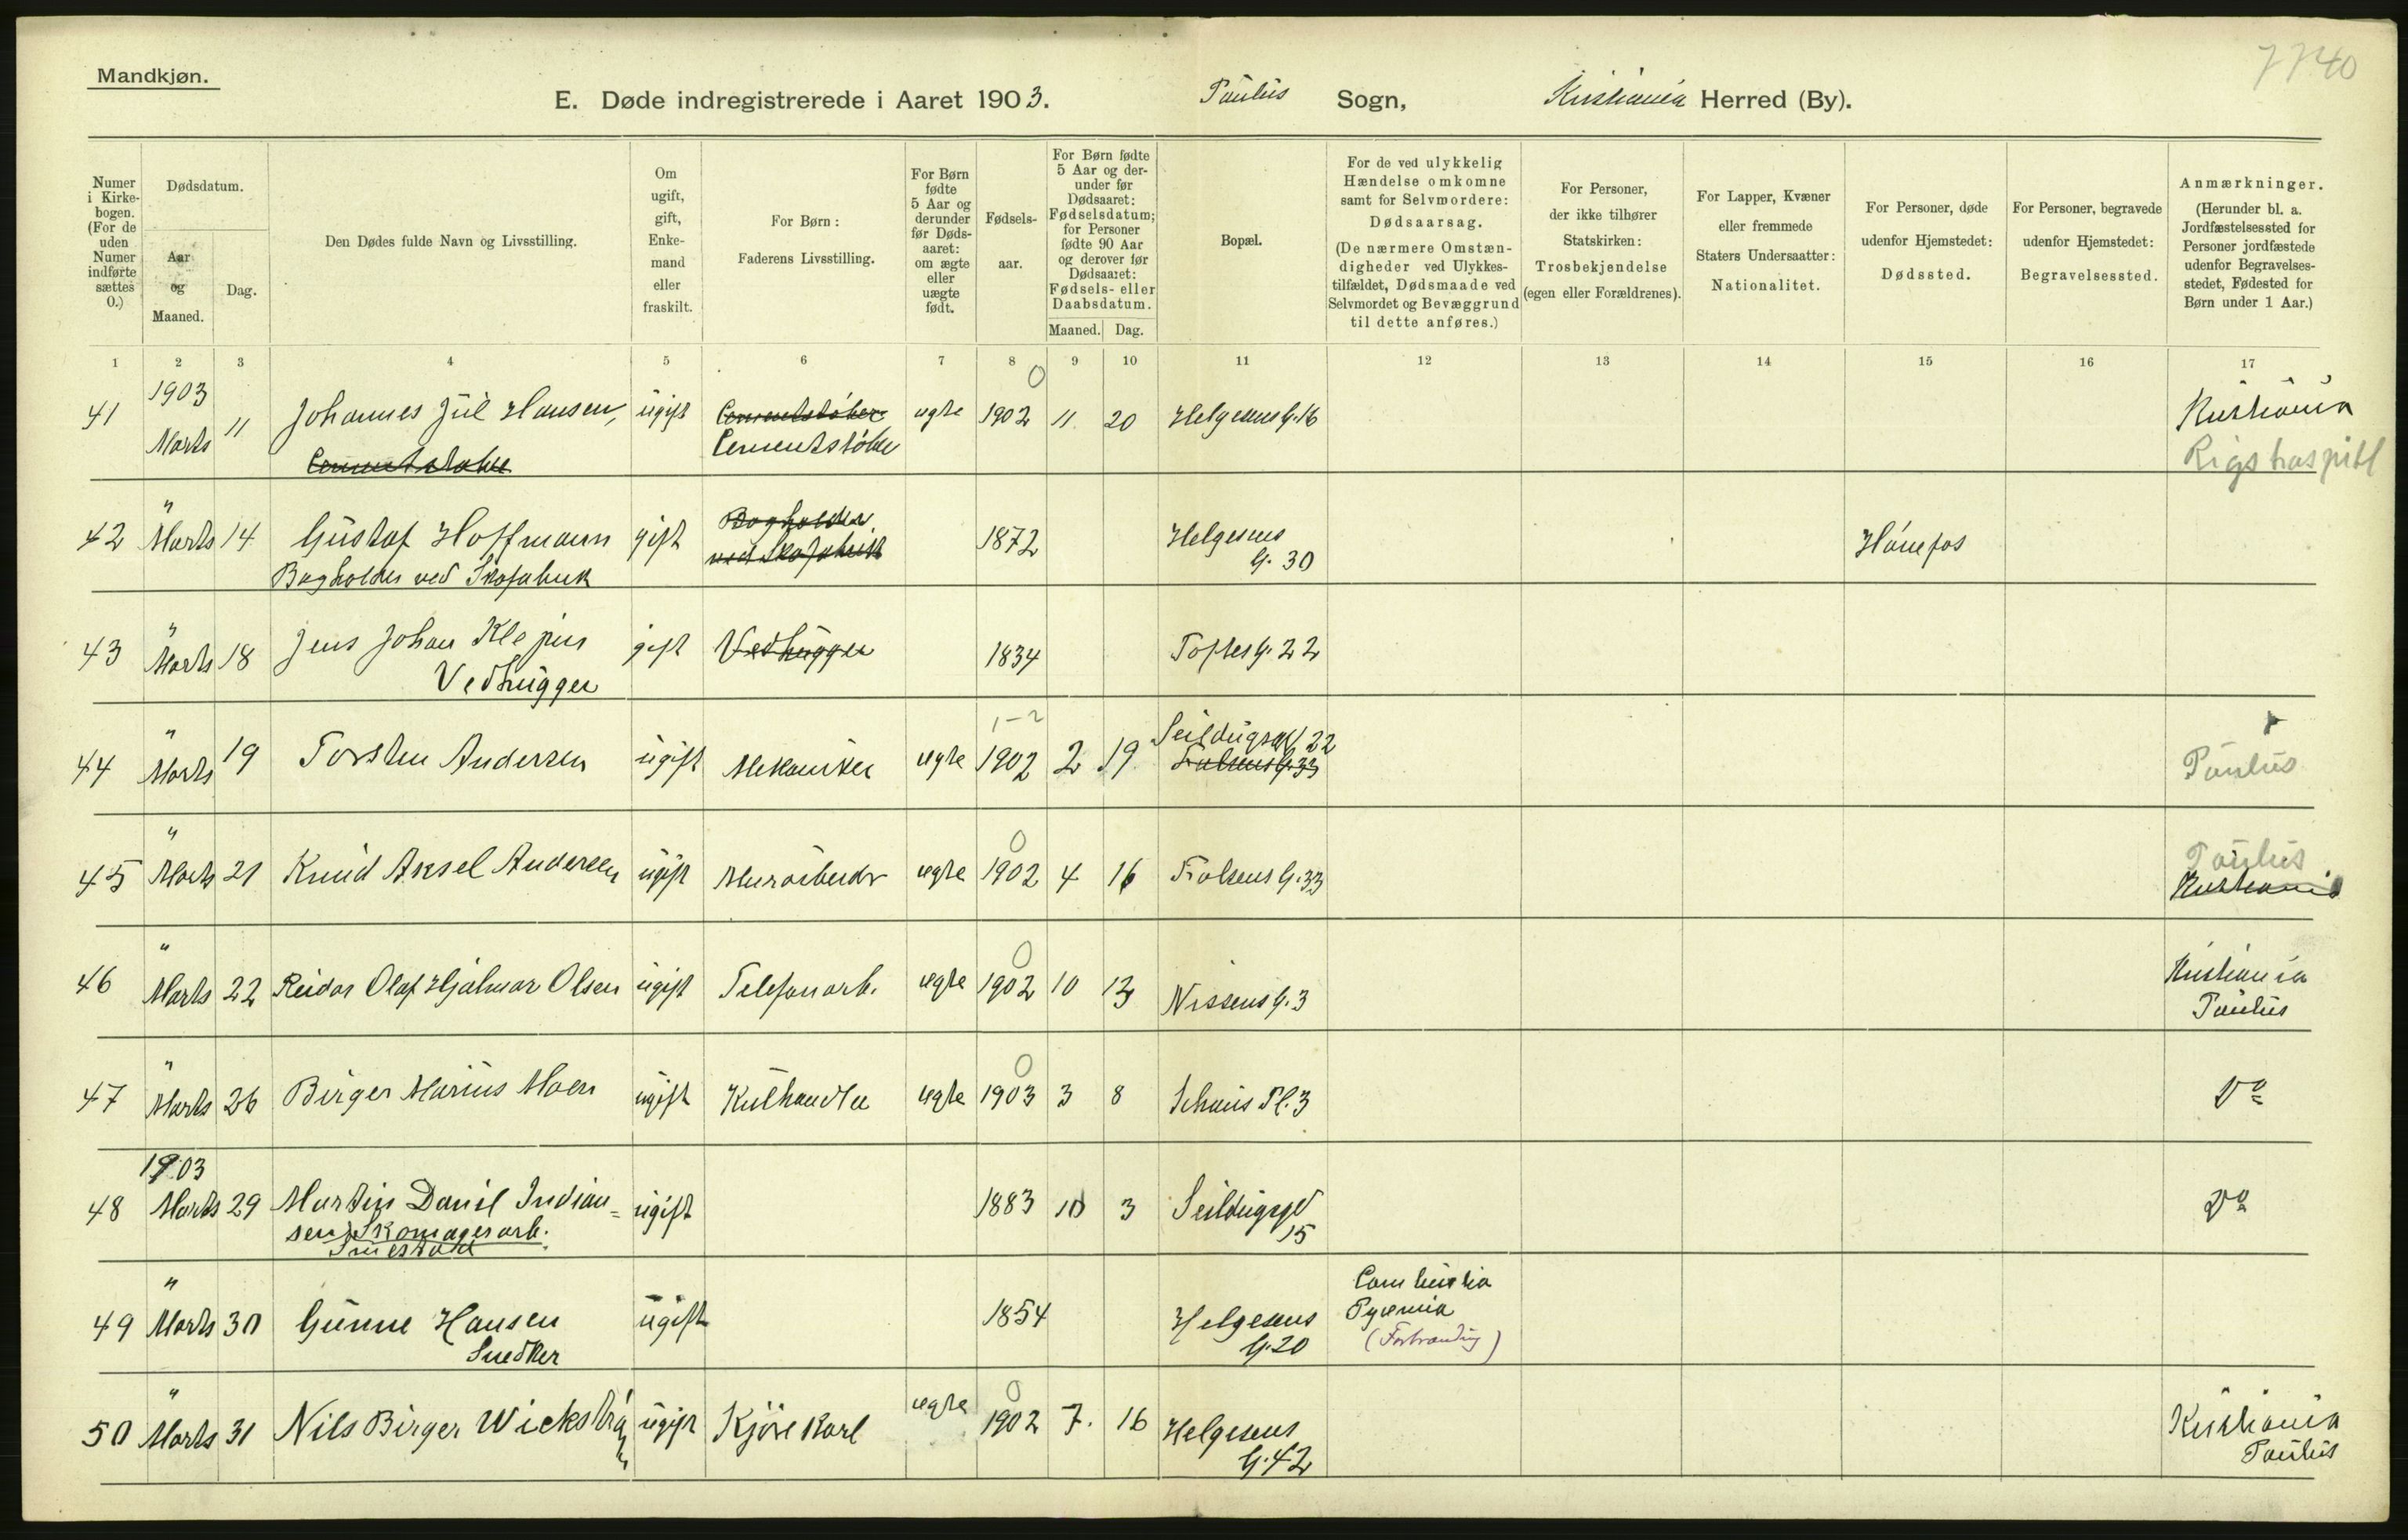 Mandkjøn.
7740
E. Døde indregistrerede i Aaret 1903. Paulus Sogn, Kristiania Herred (By).
Numer i Kirkebogen. (For de uden Numer indførte sættes 0.)
Dødsdatum.
Aar og Maaned.
Dag.
Den Dødes fulde Navn og Livsstilling.
Om ugift, gift, Enkemand eller fraskilt.
For Børn: Faderens Livsstilling.
For Børn fødte 5 Aar og derunder før Dødsaaret: om ægte eller uægte født.
Fødselsaar.
For Børn fødte 5 Aar og derunder før Dødsaaret: Fødselsdatum; for Personer fødte 90 Aar og derover før Dødsaaret: Fødsels- eller Daabsdatum.
Maaned. Dag.
Bopæl.
For de ved ulykkelig Hændelse omkomne samt for Selvmordere: Dødsaarsag. (De nærmere Omstændigheder ved Ulykkestilfældet, Dødsmaade ved Selvmordet og Bevæggrund til dette anføres.)
For Personer, der ikke tilhører Statskirken: Trosbekjendelse (egen eller Forældrenes).
For Lapper, Kvæner eller fremmede Staters Undersaatter: Nationalitet.
For Personer, døde udenfor Hjemstedet: Dødssted.
For Personer, begravede udenfor Hjemstedet: Begravelsessted.
Anmærkninger. (Herunder bl. a. Jordfæstelsessted for Personer jordfæstede udenfor Begravelsesstedet, Fødested for Børn under 1 Aar.)
1 2 3 4 5 6 7 8 9 10 11 12 13 14 15 16 17
41 1903 Marts 11 Johannes Jul Hansen, ugift Cementstøber ægte 1902 0 11 20 Helgesens G. 16 Kristiania
Cementstøber Cementstøber Rigshospitl
42 " Marts 14 Gustaf Hoffmann gift Bogholder ved Skofabrik 1872 Helgesens G. 30 Hønefos
Bogholder ved Skofabrik
43 " Marts 18 Jens Johan Klepin gift Vedhugger 1834 Toftes G. 22
Vedhugger
44 " Marts 19 Torsten Andersen ugift Mekaniker ægte 1-2 1902 2 19 Seildugsgd 22 Falsens G. 33 Paulus
45 " Marts 21 Knud Aksel Andersen ugift Murarbeider ægte 0 1902 4 16 Falsens G. 33 Paulus
Kristiania
46 " Marts 22 Reidar Olaf Hjalmar Olsen ugift Telefonarb. ægte 0 1902 10 13 Nissens G. 3 Kristiania
Paulus
47 " Marts 26 Birger Marius Moen ugift Kulhandler ægte 0 1903 3 8 Schous Pl. 3 Do
48 1903 Marts 29 Martin Danil Indiansen ugift 1883 10 3 Seildugsgd 15 Do
Skomagerarb.
49 " Marts 30 Gunne Hansen ugift 1854 Helgesens G. 20 Combustia
Snedker Pyæmia
(Forbrænding)
50 " Marts 31 Nils Birger Wickstrøm ugift Kjørekarl ægte 0 1902 7. 16 Helgesens G. 42 Kristiania
Paulus